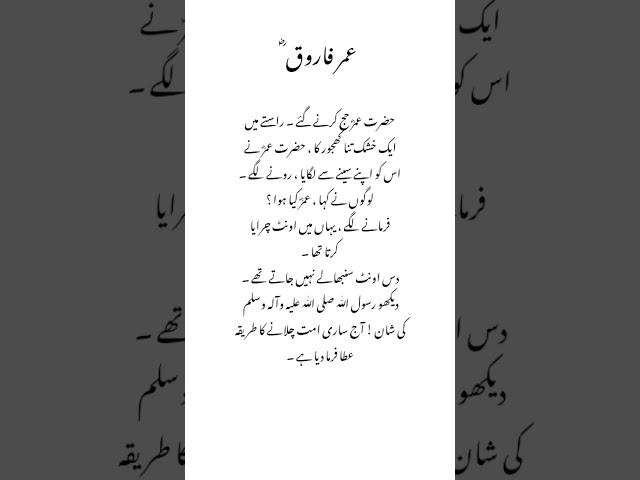 عمر فاروق ؓ
حضرت عمرؓ حج کرنے گئے ۔ راستے میں
ایک خشک تنا کھجور کا ، حضرت عمرؓ نے
اس کو اپنے سینے سے لگایا ، رونے لگے ۔
لوگوں نے کہا ، عمرؓ کیا ہوا ؟
فرمانے لگے ، یہاں میں اونٹ چرایا
کرتا تھا ۔
دس اونٹ سنبھالے نہیں جاتے تھے ۔
دیکھو رسول اللہ صلی اللہ علیہ وآلہ وسلم
کی شان ! آج ساری امت چلانے کا طریقہ
عطا فرما دیا ہے ۔